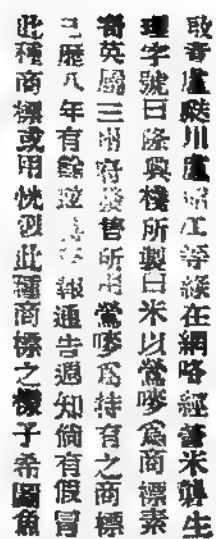 敬啓盧川盧等緣在網咯經營米辦生
理字號曰隆興棧所製白米以鶯嘜爲商標素
著英屬三州府發售所用鶯嘜爲特有之商標
已歷八年有餘茲報通告遐知倘有假冒
此種商標或用恍惚此種商標之樣子希圖魚